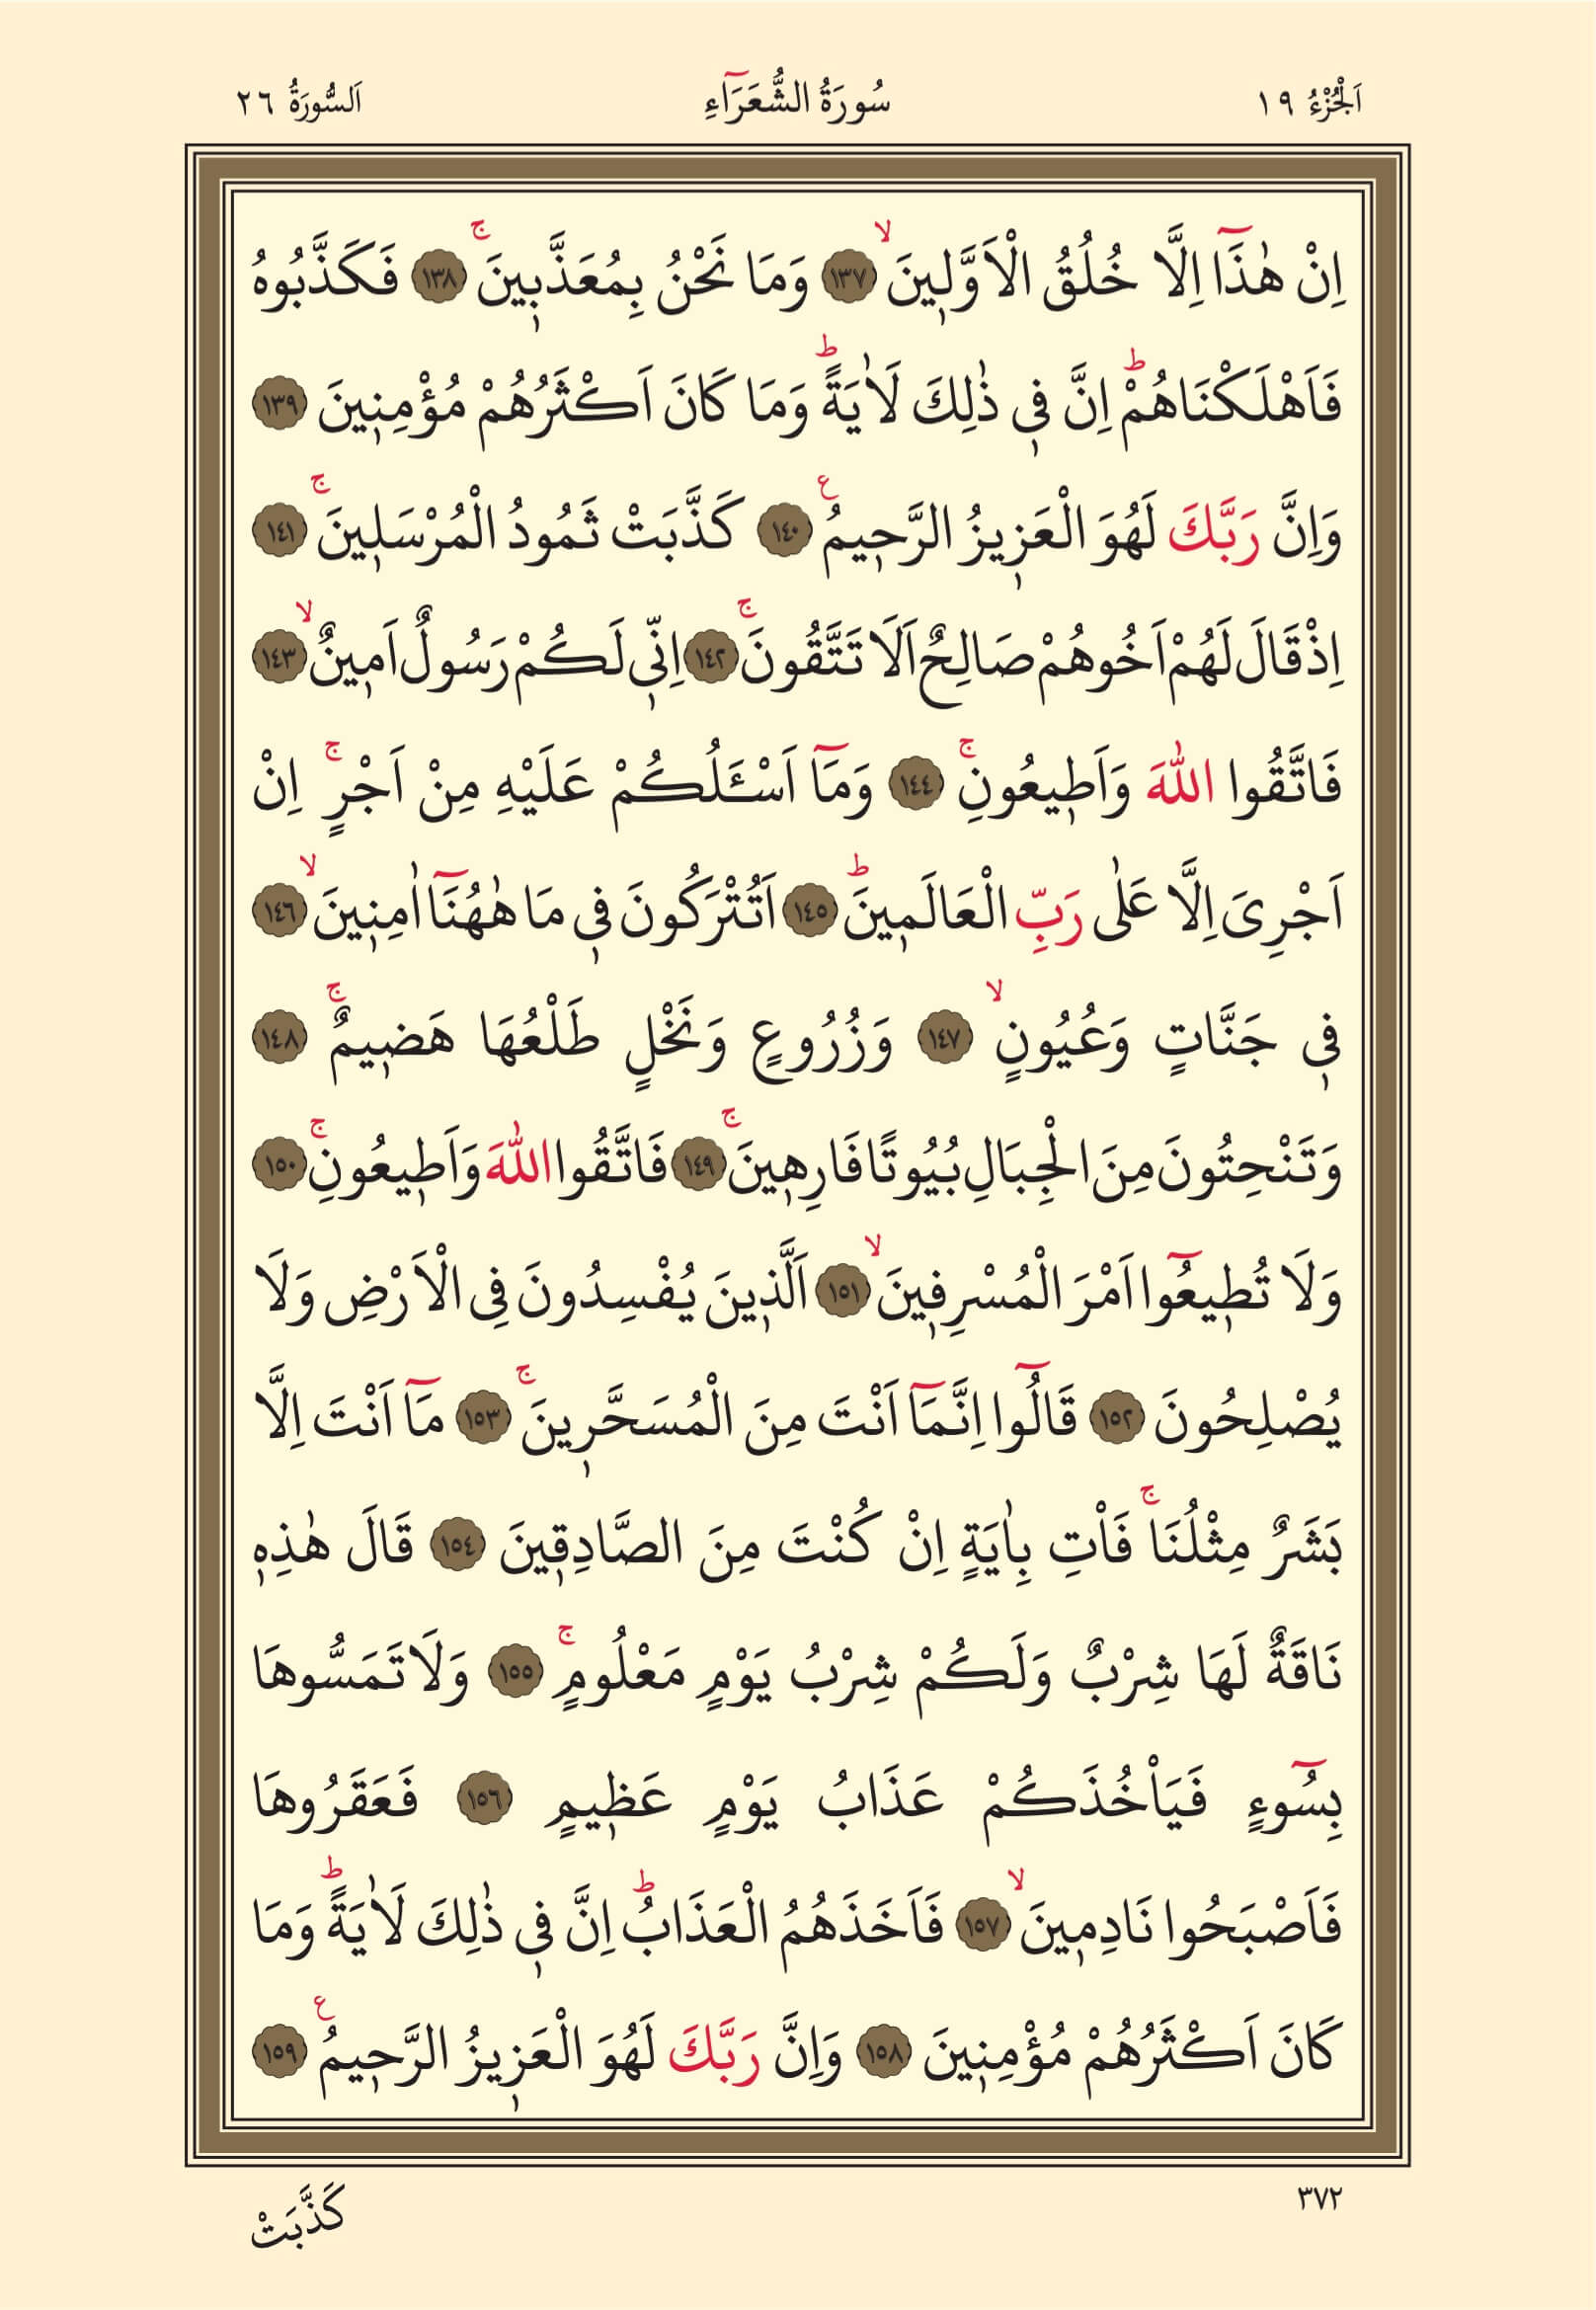 اَلْجُزْءُ ١٩ سُورَةُ الشُّعَرَٓاءِ اَلسُّورَةُ ٢٦
اِنْ هٰذَٓا اِلَّا خُلُقُ الْاَوَّل۪ينَۙ ﴿١٣٧﴾ وَمَا نَحْنُ بِمُعَذَّب۪ينَۚ ﴿١٣٨﴾ فَكَذَّبُوهُ
فَاَهْلَكْنَاهُمْۜ اِنَّ ف۪ي ذٰلِكَ لَاٰيَةًۜ وَمَا كَانَ اَكْثَرُهُمْ مُؤْمِن۪ينَ ﴿١٣٩﴾
وَاِنَّ رَبَّكَ لَهُوَ الْعَز۪يزُ الرَّح۪يمُ۟ ﴿١٤٠﴾ كَذَّبَتْ ثَمُودُ الْمُرْسَل۪ينَۚ ﴿١٤١﴾
اِذْ قَالَ لَهُمْ اَخُوهُمْ صَالِحٌ اَلَا تَتَّقُونَۚ ﴿١٤٢﴾ اِنّ۪ي لَكُمْ رَسُولٌ اَم۪ينٌۙ ﴿١٤٣﴾
فَاتَّقُوا اللّٰهَ وَاَط۪يعُونِۚ ﴿١٤٤﴾ وَمَٓا اَسْـَٔلُكُمْ عَلَيْهِ مِنْ اَجْرٍۚ اِنْ
اَجْرِىَ اِلَّا عَلٰى رَبِّ الْعَالَم۪ينَۜ ﴿١٤٥﴾ اَتُتْرَكُونَ ف۪ي مَا هٰهُنَٓا اٰمِن۪ينَۙ ﴿١٤٦﴾
ف۪ي جَنَّاتٍ وَعُيُونٍۙ ﴿١٤٧﴾ وَزُرُوعٍ وَنَخْلٍ طَلْعُهَا هَض۪يمٌۚ ﴿١٤٨﴾
وَتَنْحِتُونَ مِنَ الْجِبَالِ بُيُوتًا فَارِه۪ينَۚ ﴿١٤٩﴾ فَاتَّقُوا اللّٰهَ وَاَط۪يعُونِۚ ﴿١٥٠﴾
وَلَا تُط۪يعُٓوا اَمْرَ الْمُسْرِف۪ينَۙ ﴿١٥١﴾ اَلَّذ۪ينَ يُفْسِدُونَ فِى الْاَرْضِ وَلَا
يُصْلِحُونَ ﴿١٥٢﴾ قَالُٓوا اِنَّمَٓا اَنْتَ مِنَ الْمُسَحَّر۪ينَۚ ﴿١٥٣﴾ مَٓا اَنْتَ اِلَّا
بَشَرٌ مِثْلُنَاۚ فَاْتِ بِاٰيَةٍ اِنْ كُنْتَ مِنَ الصَّادِق۪ينَ ﴿١٥٤﴾ قَالَ هٰذِه۪
نَاقَةٌ لَهَا شِرْبٌ وَلَكُمْ شِرْبُ يَوْمٍ مَعْلُومٍۚ ﴿١٥٥﴾ وَلَا تَمَسُّوهَا
بِسُٓوءٍ فَيَاْخُذَكُمْ عَذَابُ يَوْمٍ عَظ۪يمٍ ﴿١٥٦﴾ فَعَقَرُوهَا
فَاَصْبَحُوا نَادِم۪ينَۙ ﴿١٥٧﴾ فَاَخَذَهُمُ الْعَذَابُۜ اِنَّ ف۪ي ذٰلِكَ لَاٰيَةًۜ وَمَا
كَانَ اَكْثَرُهُمْ مُؤْمِن۪ينَ ﴿١٥٨﴾ وَاِنَّ رَبَّكَ لَهُوَ الْعَز۪يزُ الرَّح۪يمُ۟ ﴿١٥٩﴾
٣٧٢
كَذَّبَتْ